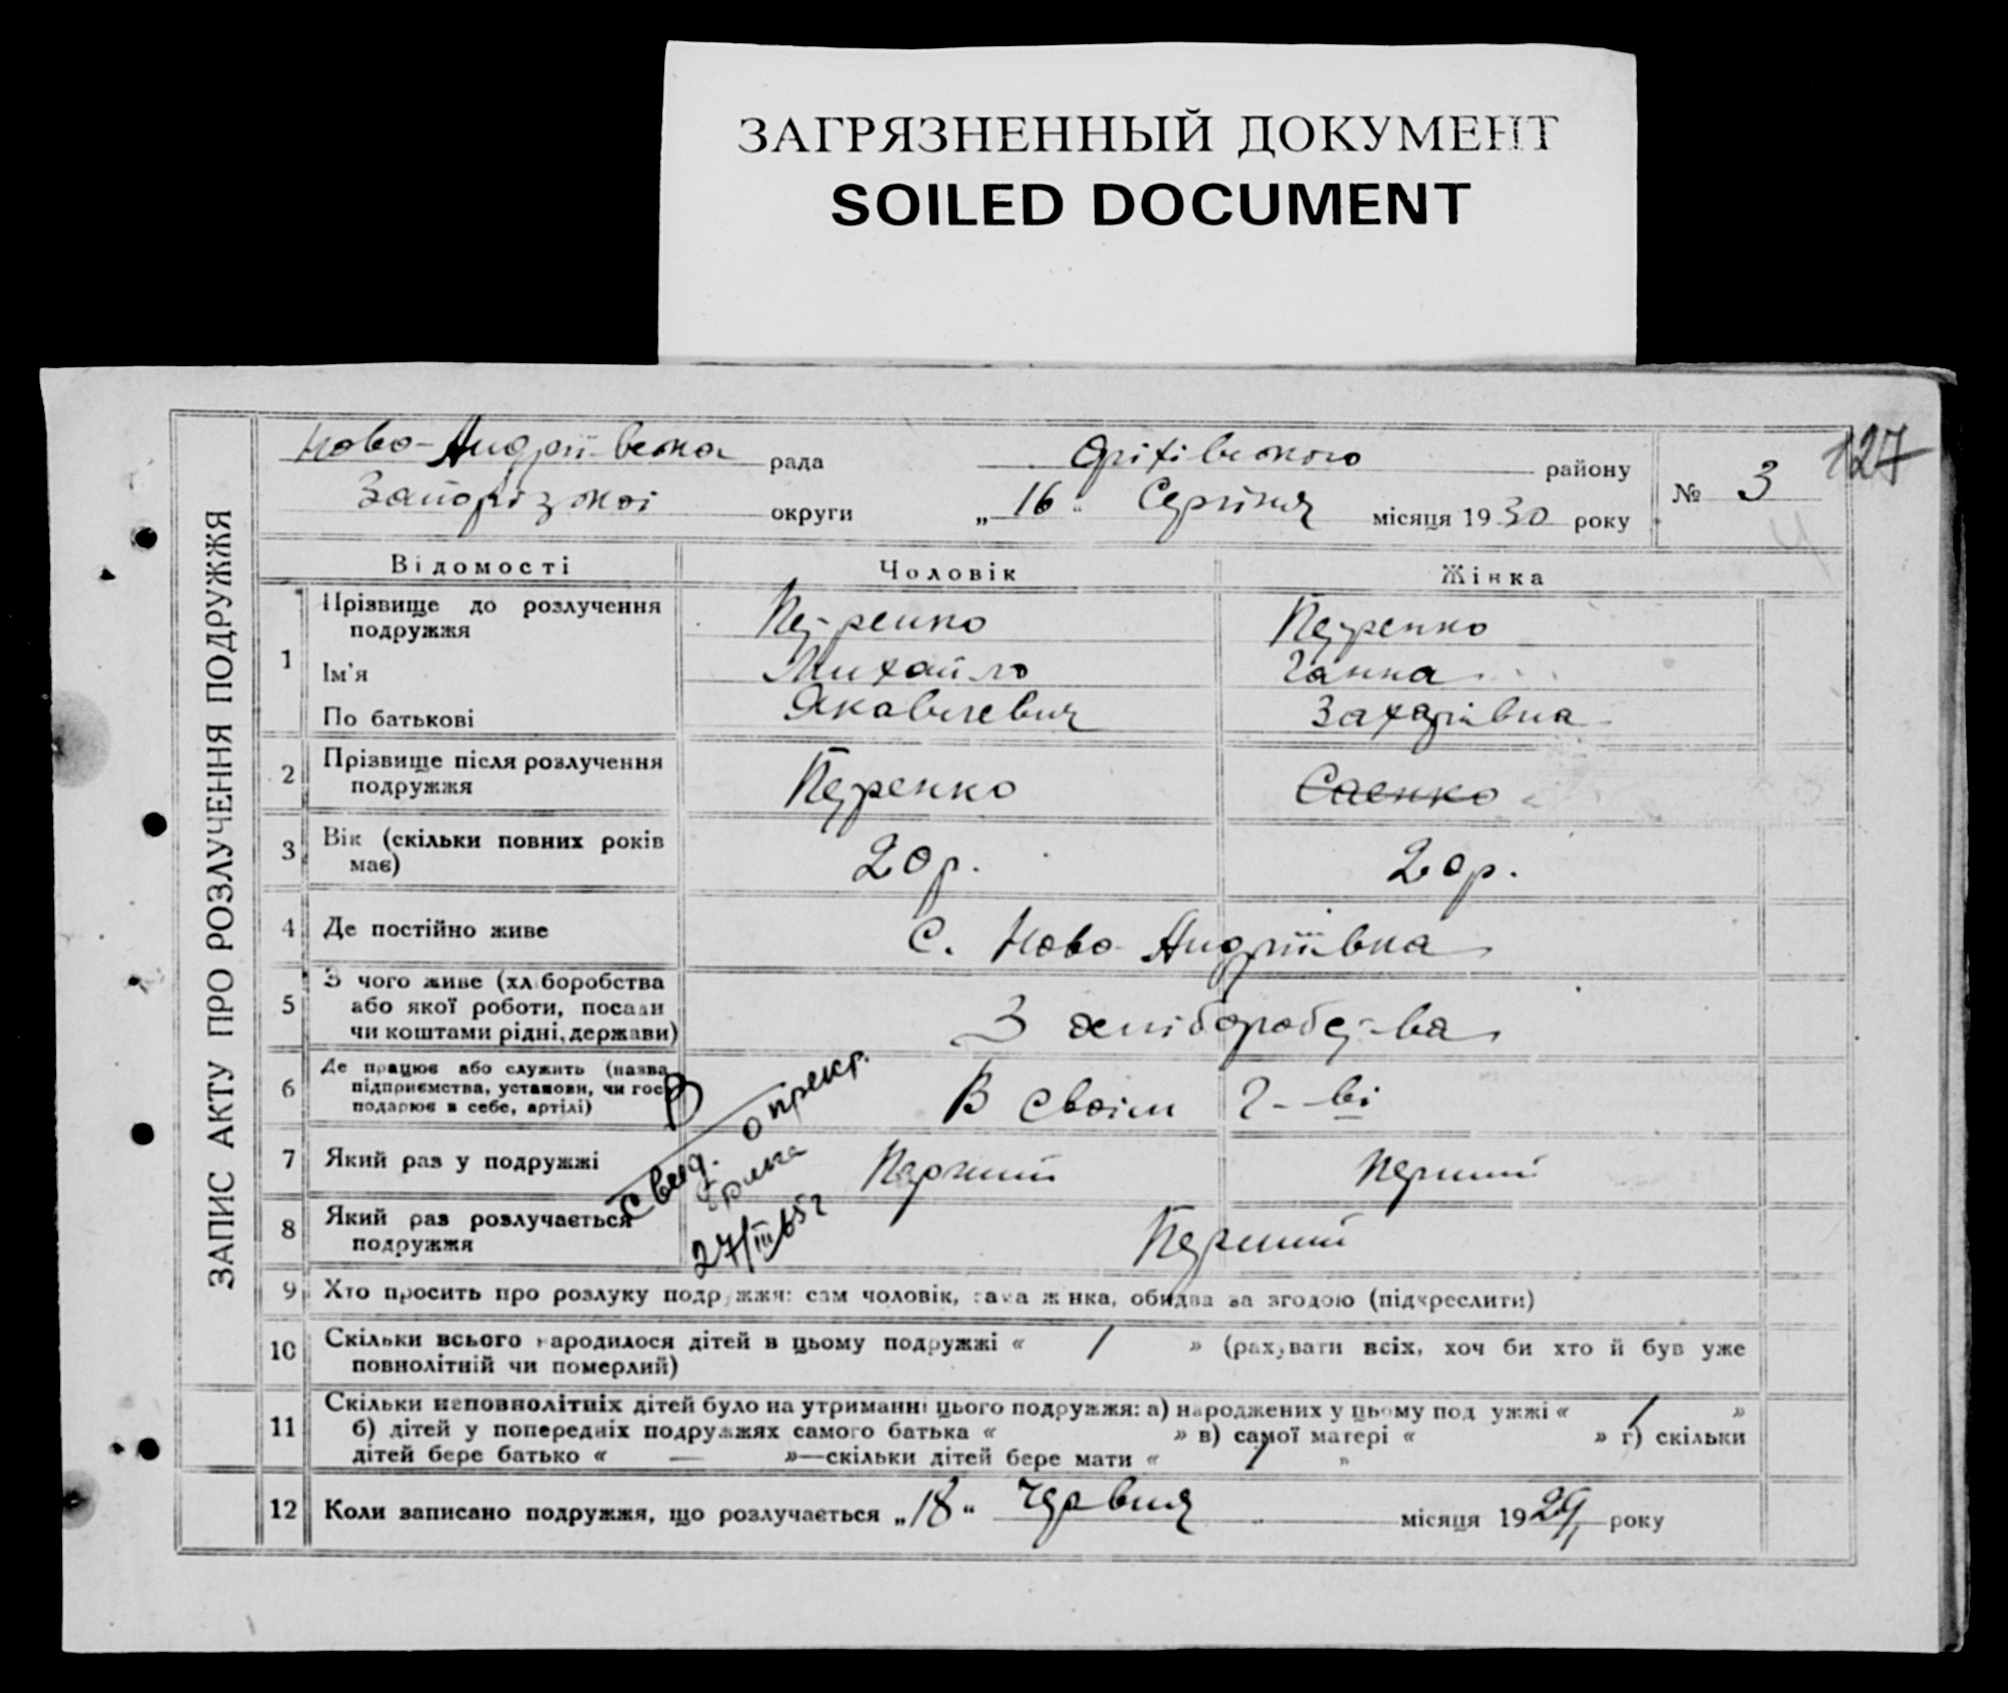 ЗАГРЯЗНЕННЫЙ ДОКУМЕНТ
SOILED DOCUMENT
127
ЗАПИС АКТУ ПРО РОЗЛУЧЕННЯ ПОДРУЖЖЯ
Ново-Андріївська рада Оріхівського району
Запорізької округи „16“ Серпня місяця 1930 року
№ 3
Відомості Чоловік Жінка
1 Прізвище до розлучення подружжя Петренко Петренко
Ім'я Михайло Ганна
По батькові Якович Захарівна
2 Прізвище після розлучення подружжя Петренко Саенко
3 Вік (скільки повних років має) 20р. 20р.
4 Де постійно живе С. Ново-Андріївка
5 З чого живе (хліборобства
або якої роботи, посади
чи коштами рідні, держави) З хліборобства
6 Де працює або служить (назва
підприємства, установи, чи гос
подарює в себе, артілі) В своім г-ві
Свид. о прекр.
брака
27/III 65г
7 Який раз у подружжі Перший Перший
8 Який раз розлучається
подружжя Перший
9 Хто просить про розлуку подружжя: сам чоловік, сама жінка, обидва за згодою (підкреслити)
10 Скільки всього народилося дітей в цьому подружжі « 1 » (рахувати всіх, хоч би хто й був уже
повнолітній чи померлий)
11 Скільки неповнолітніх дітей було на утриманні цього подружжя: а) народжених у цьому подружжі « 1 »
б) дітей у попередніх подружжях самого батька « » в) самої матері « » г) скільки
дітей бере батько « — »—скільки дітей бере мати « 1 »
12 Коли записано подружжя, що розлучається „18“ Червня місяця 1929 року